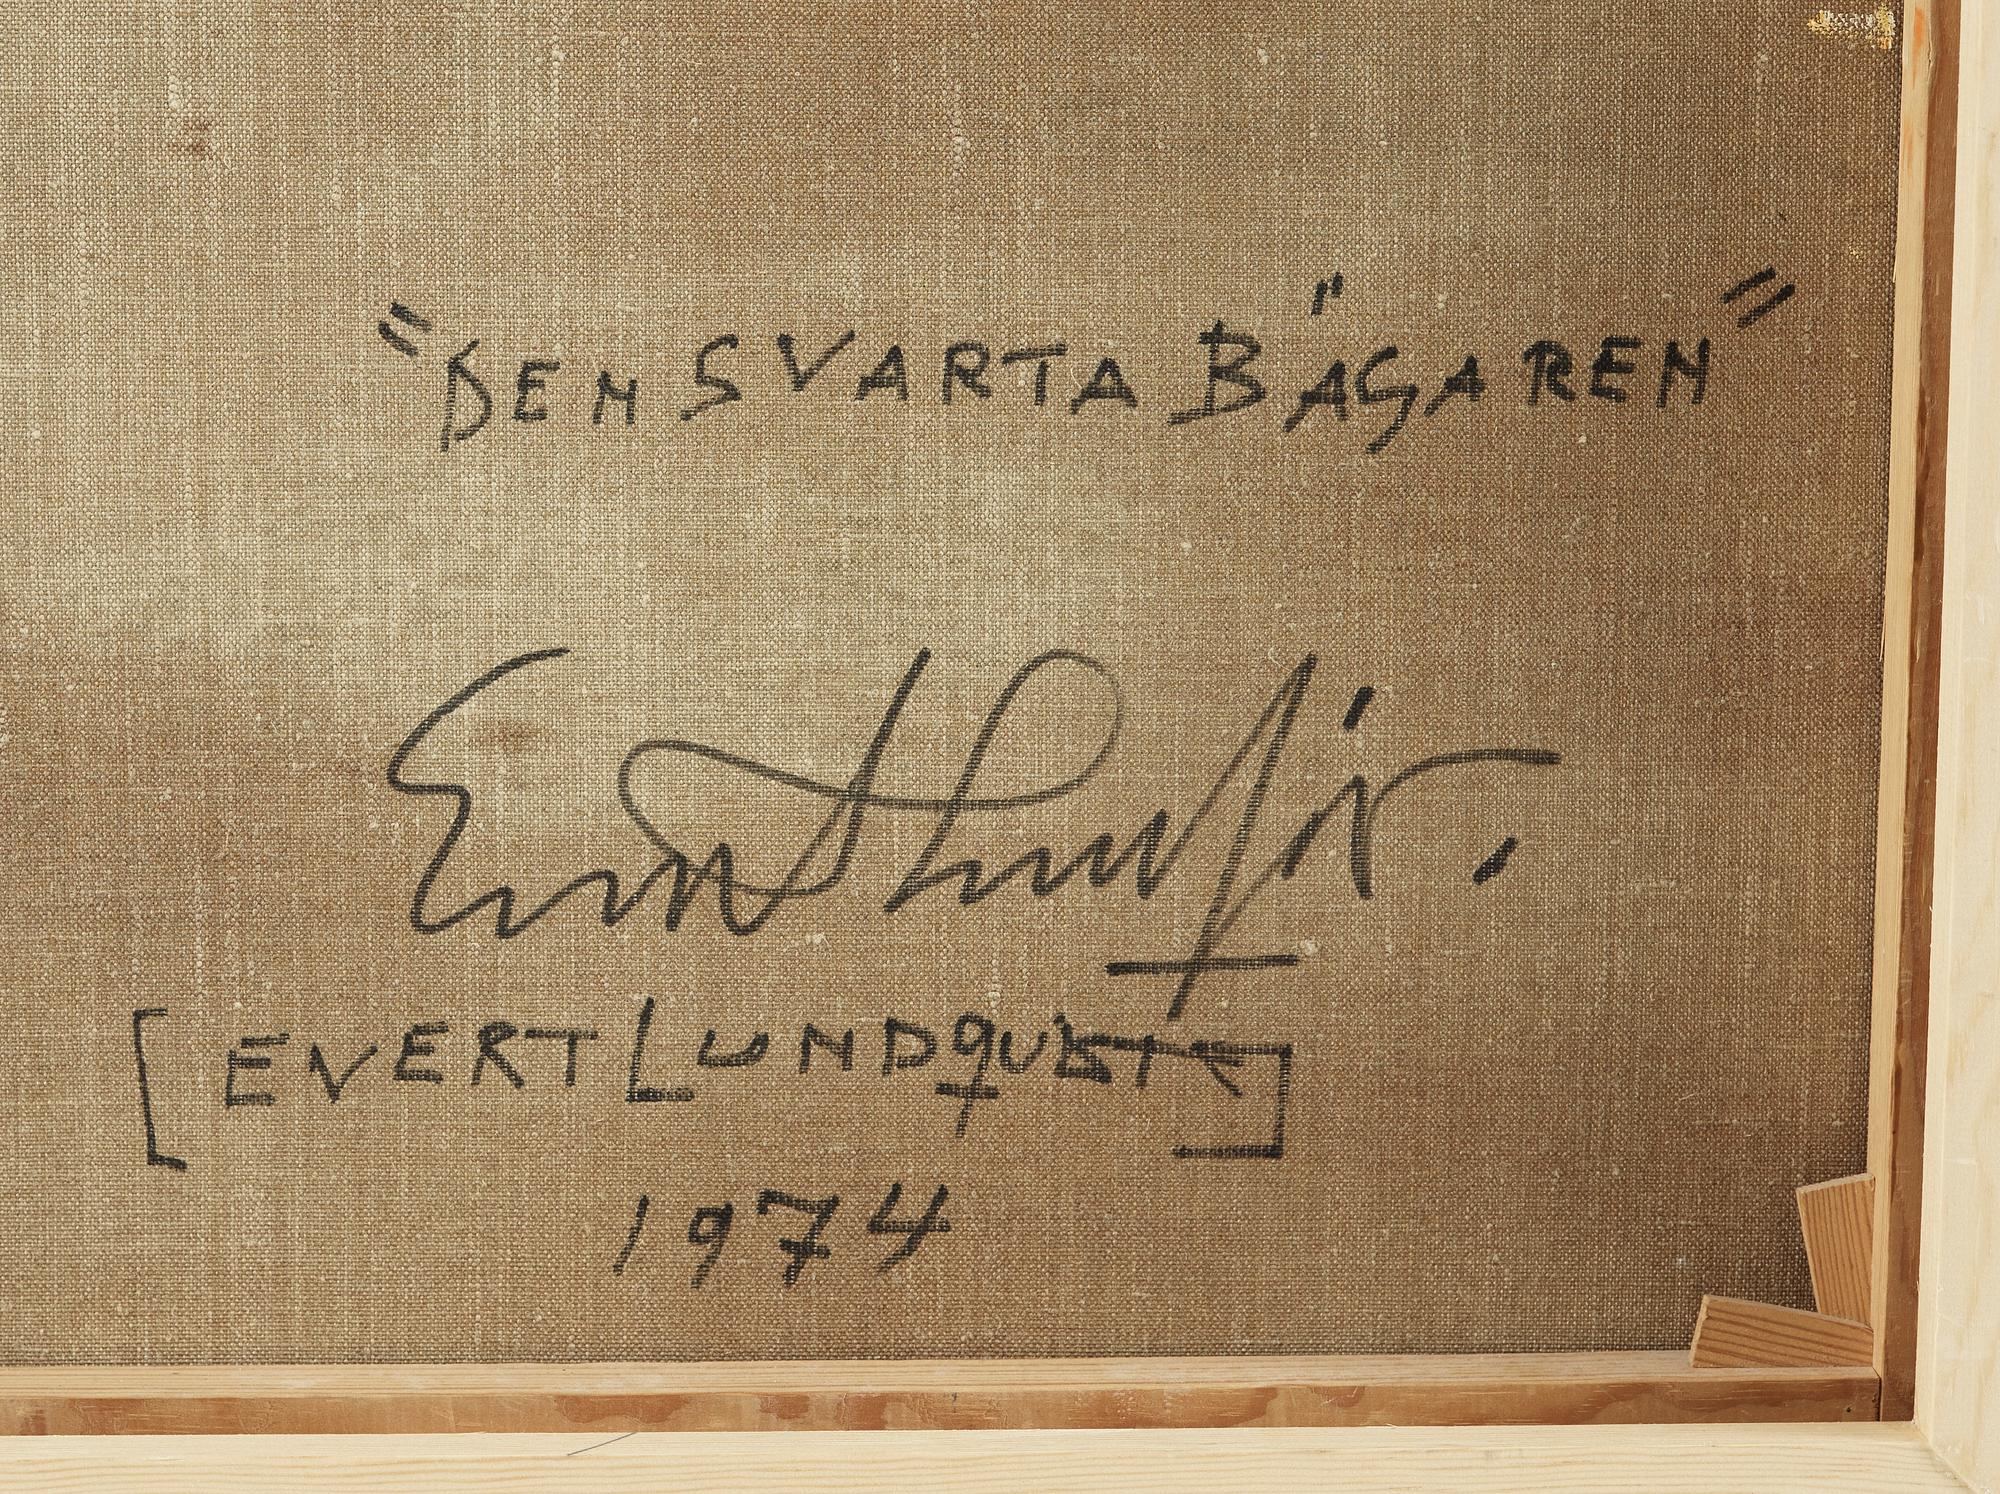 "DEN SVARTA BÄGAREN"
Evert Lundquist.
[EVERT LUNDQUIST]
1974